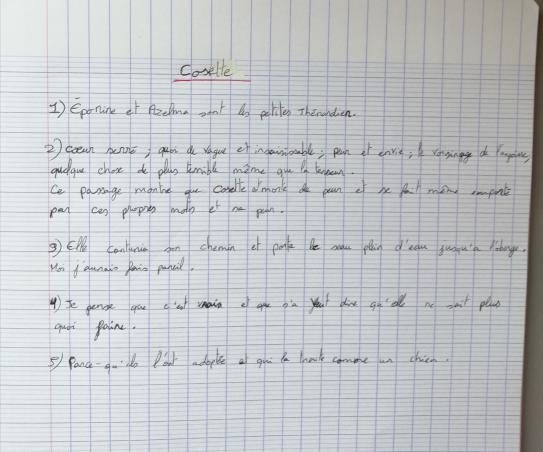 Cosette
1) Éponine et Azelma sont les petites Thénardier.
2) Cœur serré ; quoi de vague et insaisissable ; peur et envie ; le voisinage de
quelque chose de plus terrible même que la terreur.
Ce passage montre que Cosette est morte de peur et se fait même emporté
par ces propres mots et sa peur.
3) Elle continua son chemin et porte le seau plein d'eau jusqu'a l'
Moi j'aurais fais pareil.
4) Je pense que c'est vrais et que sa veut dire qu'elle ne sait plus
quoi faire.
5) Parce-qu'ils l'ont adoptée et qui la traite comme un chien.